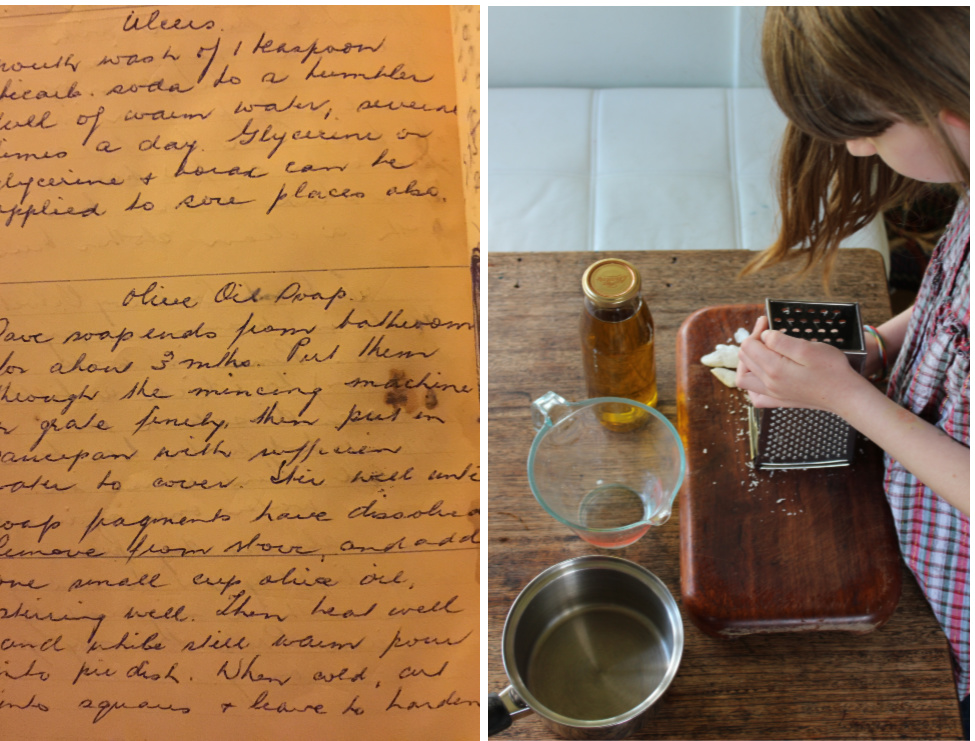 Ulcers.
mouth wash of 1 teaspoon
bicarb. soda to a tumbler
full of warm water, severa
times a day. Glycerine or
glycerine + borax can be
applied to sore places also.
Olive Oil Soap.
Save soap ends from bathroom
for about 3 mths. Put them
through the mincing machine
or grate finely, then put in
saucepan with sufficien
water to cover. Stir well unti
soap fragments have dissolved
Remove from stove, and add
one small cup olive oil,
stirring well. Then heat well
and while still warm pour
into pie dish. When cold, cut
into squares + leave to harden